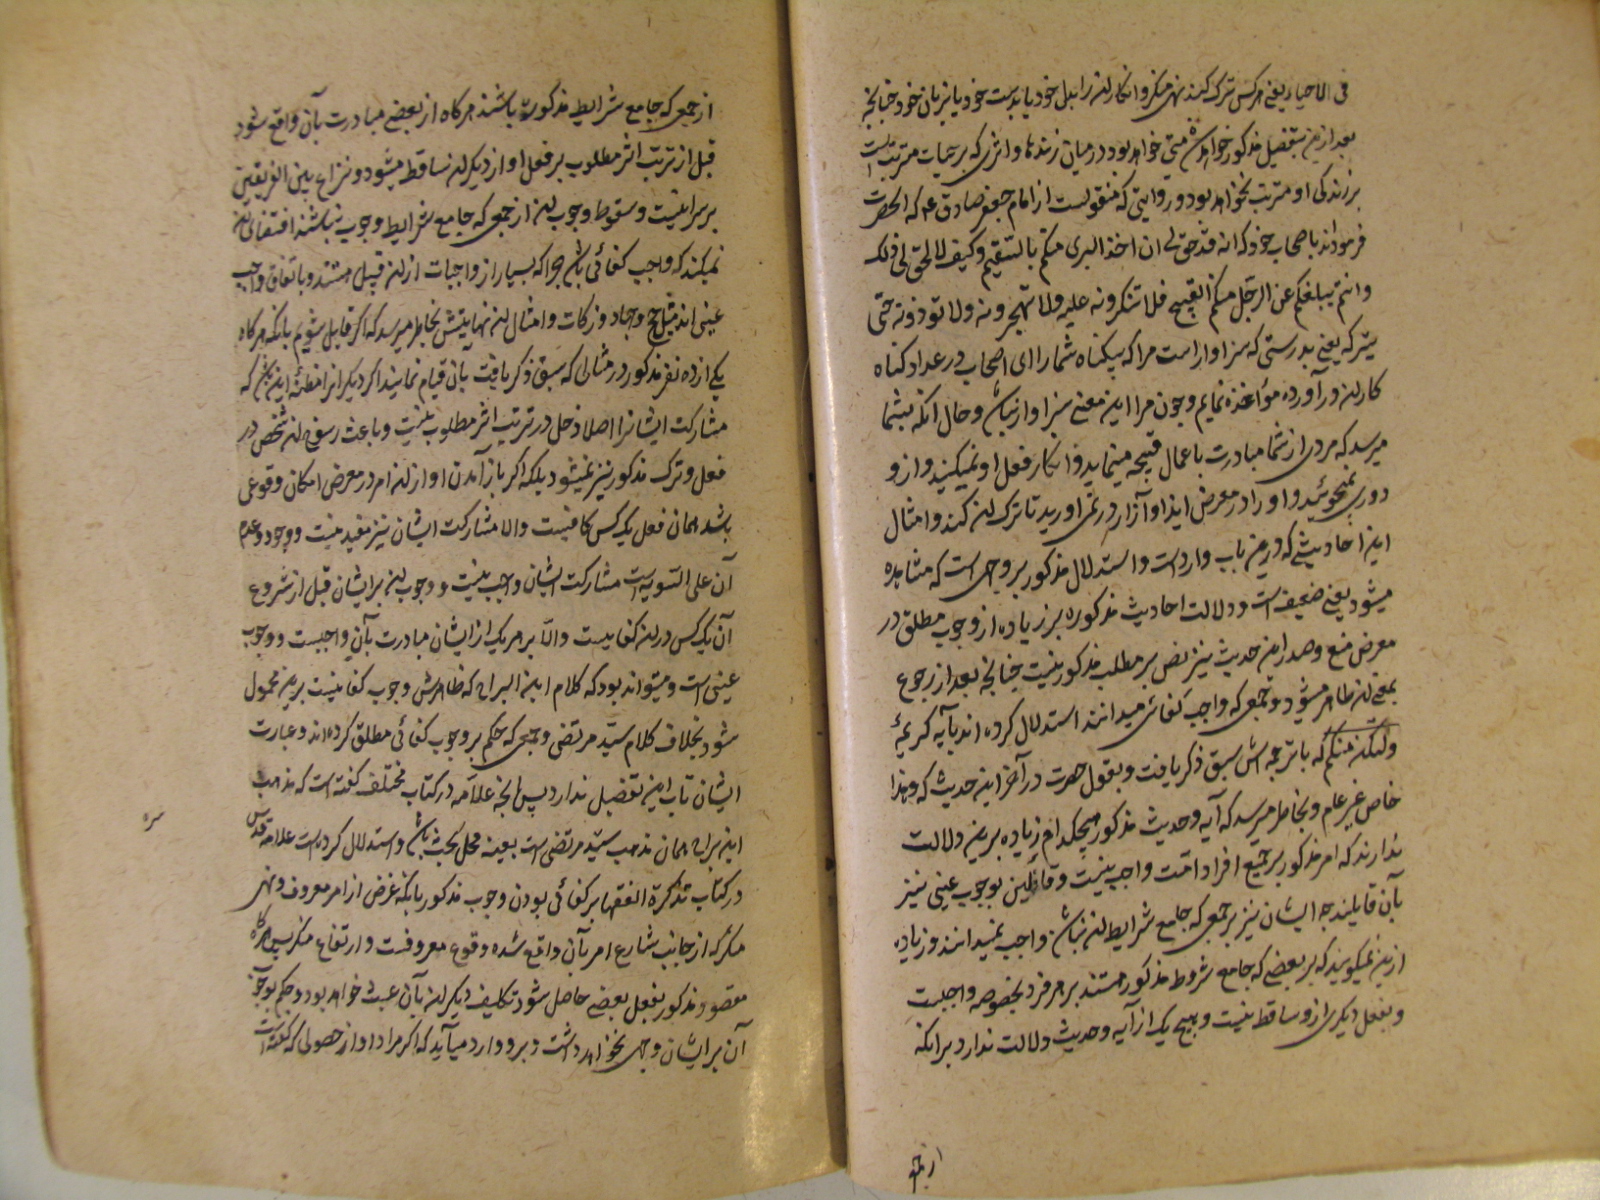 فی الاحیاء یعنی هر کس ترک کند نهی منکر و انکار انرا بدل خود یا بدست خود یا بزبان خود چنانچه
بعد ازین بتفصیل مذکور خواهد شد میتی خواهد بود در میان زندها و اثری که بر حیات مترتب است
بر زندگی او مترتب نخواهد بود و روایتی که منقولست از امام جعفر صادق عه که انحضرت
فرموداند باصحاب خود که انه قد حق لی ان اخذ البری منکم بالسقیم و کیف لا یحق لی ذلک
و انتم یبلغکم عن الرجل منکم القبیح فلا تنکرونه علیه ولا تهجرونه ولا توذونه حتی
یترکه یعنی بدرستی که سزاوار است مرا که بیکناه شما را ای اصحاب در عداد کناه
کاران در آورده مؤاخذه نمایم و چون مرا این معنی سزاوار نباشد و حال آنکه بشما
میرسد که مردی از شما مبادرت باعمال قبیحه مینماید و انکار فعل او نمیکنید و ازو
دوری نمیجوئید و او را در معرض ایذا و آزار در نمی اورید تا ترک ان کند و امثال
این احادیثی که درین باب وارد است و استدلال مذکور بر وجهی است که مشاهده
میشود یعنی ضعیف است و دلالت احادیث مذکوره بر زیاده از وجوب مطلق در
معرض منع و صدر این حدیث نیز نص بر مطلب مذکور نیست چنانچه بعد از رجوع
بمعنی ان ظاهر میشود و جمعی که واجب کفائی میدانند استدلال کرده اند بآیه کریمهٔ
ولتکن منکم که با ترجمه اش سبق ذکر یافت و بقول حضرت در آخر این حدیث که و هذا
خاص غیر عام و بخاطر میرسد که آیه و حدیث مذکور هیچکدام زیاده برین دلالت
ندارند که امر مذکور بر جمیع افراد امت واجب نیست و قائلین بوجوب عینی نیز
بآن قایلند چه ایشان نیز بر جمعی که جامع شرایط ان نباشند واجب نمیدانند و زیاده
ازین نمیکویند که بر بعضی که جامع شروط مذکور هستند بر هر فرد بخصوصه واجبست
و بفعل دیکری ازو ساقط نیست و هیچ یک از آیه و حدیث دلالت ندارد بر انکه
از جمعی که جامع شرایط مذکوره باشند هر کاه از بعضی مبادرت بآن واقع شود
قبل از ترتب اثر مطلوب بر فعل او از دیکران ساقط میشود و نزاع بین الفریقین
بر سر اینست و سقوط وجوب ان از جمعی که جامع شرایط وجوب نباشند اقتضای ان
نمیکند که واجب کفائی باشد چرا که بسیار از واجبات ازین قبیل هستند و باتفاق واجب
عینی اند مثل حج و جهاد و زکات و امثال ان نهایتش بخاطر میرسد که اگر قایل شویم بانکه هر کاه
یکی از ده نفر مذکور در مثالی که سبق ذکر یافت بآن قیام نماید اکر دیکرانرا مظنهٔ این باشد که
مشارکت ایشانرا اصلا دخل در ترتب اثر مطلوب نیست و باعث رسوخ ان شخص در
فعل و ترک مذکور نیز نمیشود بلکه اکر باز آمدن او از ان امر در معرض امکان وقوعی
باشد همان فعل یک کس کافیست و الا مشارکت ایشان نیز مفید نیست و وجود و عدم
آن علی السویه است مشارکت ایشان واجب نیست و وجوب ان بر ایشان قبل از شروع
آن یک کس در ان کفائیست والّا بر هر یک از ایشان مبادرت بآن واجبست و وجوب
عینی است و میتواند بود که کلام ابن البراج که ظاهرش وجوب کفائیست برین محمول
شود بخلاف کلام سیّد مرتضی و جمعی که حکم بر وجوب کفائی مطلق کرده اند و عبارت
ایشان تاب این تفصیل ندارد پس انچه علامه در کتاب مختلف کفته است که مذهب
ابن براج همان مذهب سیّد مرتضی است بعینه محل بحث باشد و استدلال کرده است علامه قدس
سره
در کتاب تذکرة الفقها بر کفائی بودن وجوب مذکور بانکه غرض از امر معروف و نهی
منکر که از جانب شارع امر بآن واقع شده وقوع معروفست و ارتفاع منکر پس هر کاه
مقصود مذکور بفعل بعضی حاصل شود تکلیف دیکران بآن عبث خواهد بود و حکم بوجوب
آن بر ایشان وجهی نخواهد داشت و برو وارد میآید که اکر مراد او از حصولی که کفته است